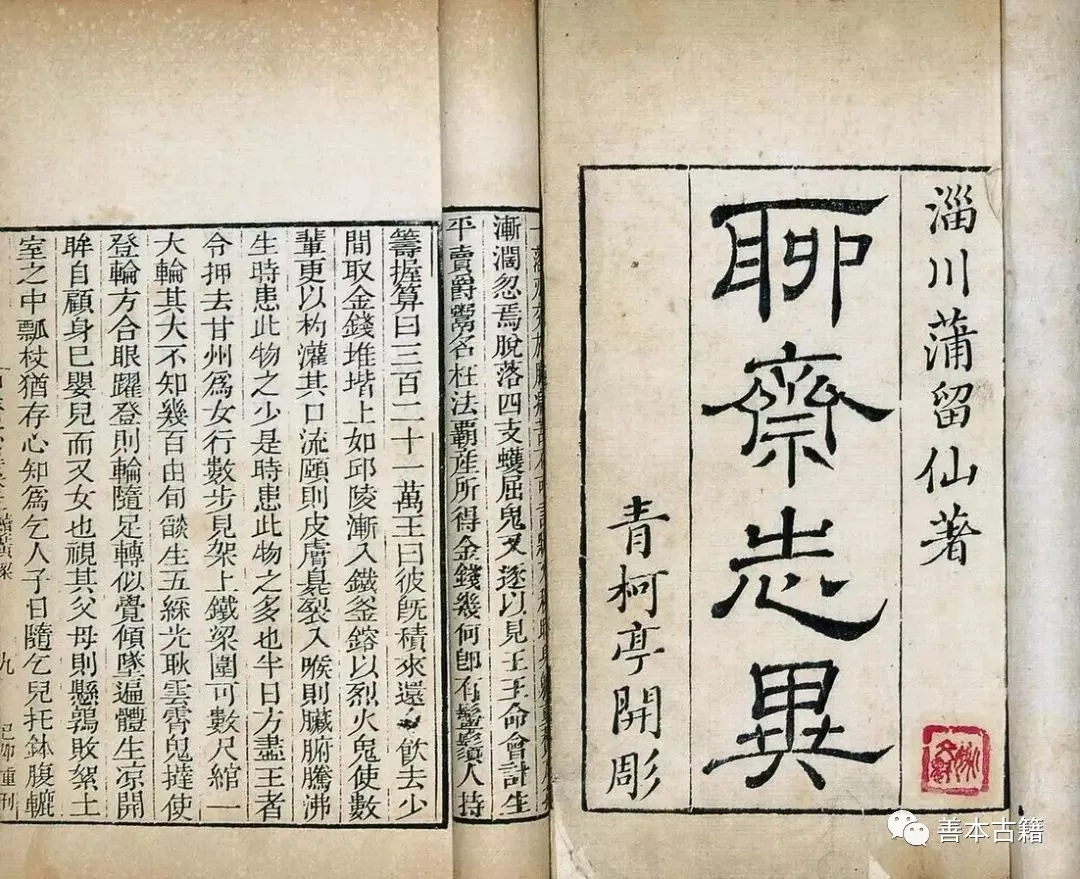 淄川蒲留仙著
聊齋志異
青柯亭開彫
漸濶忽焉脫落四支蠖屈鬼又逐以見王王命會計生
平賣爵鬻名枉法霸產所得金錢幾何卽有鬡鬚人持
籌握算曰三百二十一萬王曰彼旣積來還令飲去少
間取金錢堆堦上如邱陵漸入鐵釜鎔以烈火鬼使數
輩更以杓灌其口流頤則皮膚臭裂入喉則臟腑騰沸
生時患此物之少是時患此物之多也半日方盡王者
令押去甘州爲女行數步見架上鐵梁圍可數尺綰一
大輪其大不知幾百由旬燄生五綵光耿雲霄鬼撻使
登輪方合眼躍登則輪隨足轉似覺傾墜遍體生凉開
眸自顧身已嬰兒而又女也視其父母則懸鶉敗絮土
室之中瓢杖猶存心知爲乞人子日隨乞兒托鉢腹轆
九
善本古籍